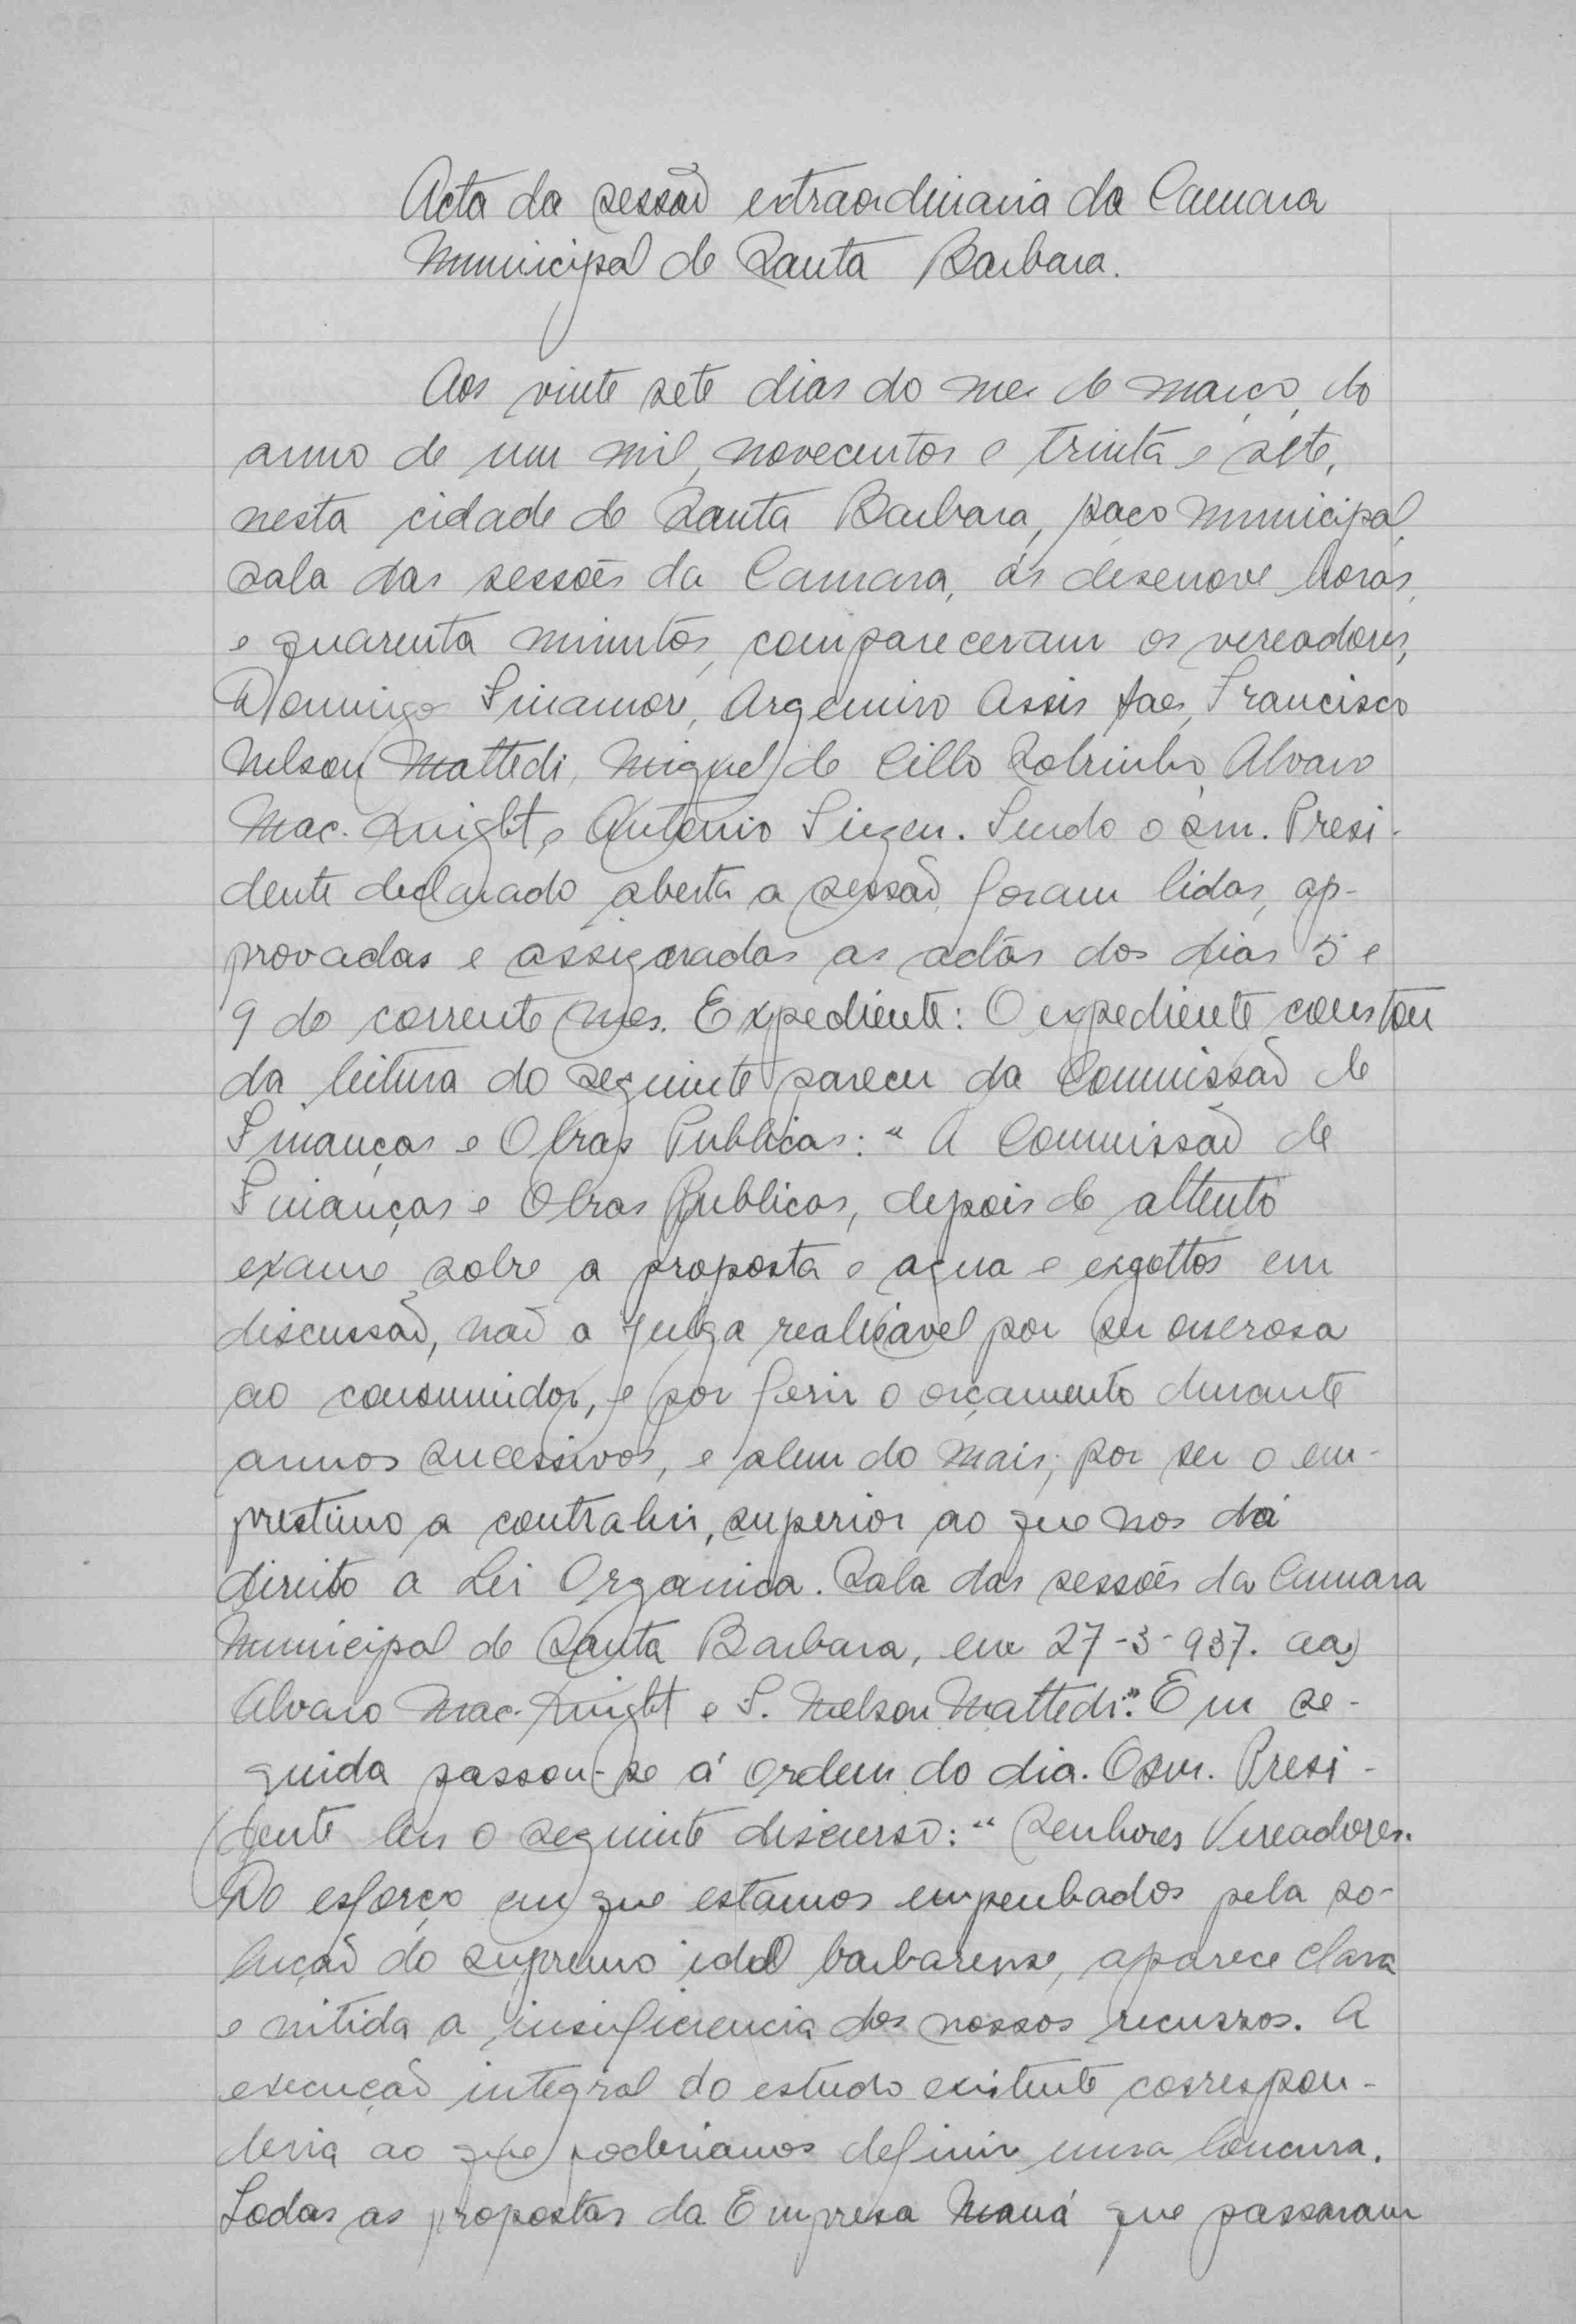 Acta da sessão extraordinaria da Camara
Municipal de Santa Barbara.
Aos vinte sete dias do mes de março, do
anno de um mil, novecentos e trinta e sete,
nesta cidade de Santa Barbara, paço municipal,
sala das sessões da Camara, ás desenove horas,
e quarenta minutos, compareceram os vereadores,
Domingos Finamore, Argemiro Assis Paes, Francisco
Nelson Mattedi, Miguel de Cillo Sobrinho, Alvaro
Mac-Knight, e Antonio. Sendo o snr. Presi-
dente declarado aberta a sessão, foram lidas, ap-
provadas e assignadas as actas dos dias 5 e
9 do corrente mes. Expediente: O expediente constou
da leitura do seguinte parecer da Commissão de
Finanças e Obras Publicas: "A Commissão de
Finanças e Obras Publicas, depois de attento
exame sobre a proposta e agua e exgottos em
discussão, não a julga realisavel por ser onerosa
ao consumidor, e por ferir o orçamento durante
annos sucessivos, e alem do mais, por ser o em-
prestimo a contrahir, superior ao que nos dá
direito a Lei Organica. Sala das sessões da Camara
Municipal de Santa Barbara, em 27-3-937. aa)
Alvaro Mac-Knight e F. Nelson Mattedi." Em se-
guida passou-se á ordem do dia. O snr. Presi-
dente leu o seguinte discurso: "Senhores Vereadores.
Do esforço em que estamos empenhados pela so-
lução do supremo ideal barbarense, aparece clara
e nitida a insuficiencia dos nossos recursos. A
execução integral do estudo existente correspon-
deria ao que poderiamos definir uma loucura.
Todas as propostas da Empresa Mauá que passaram